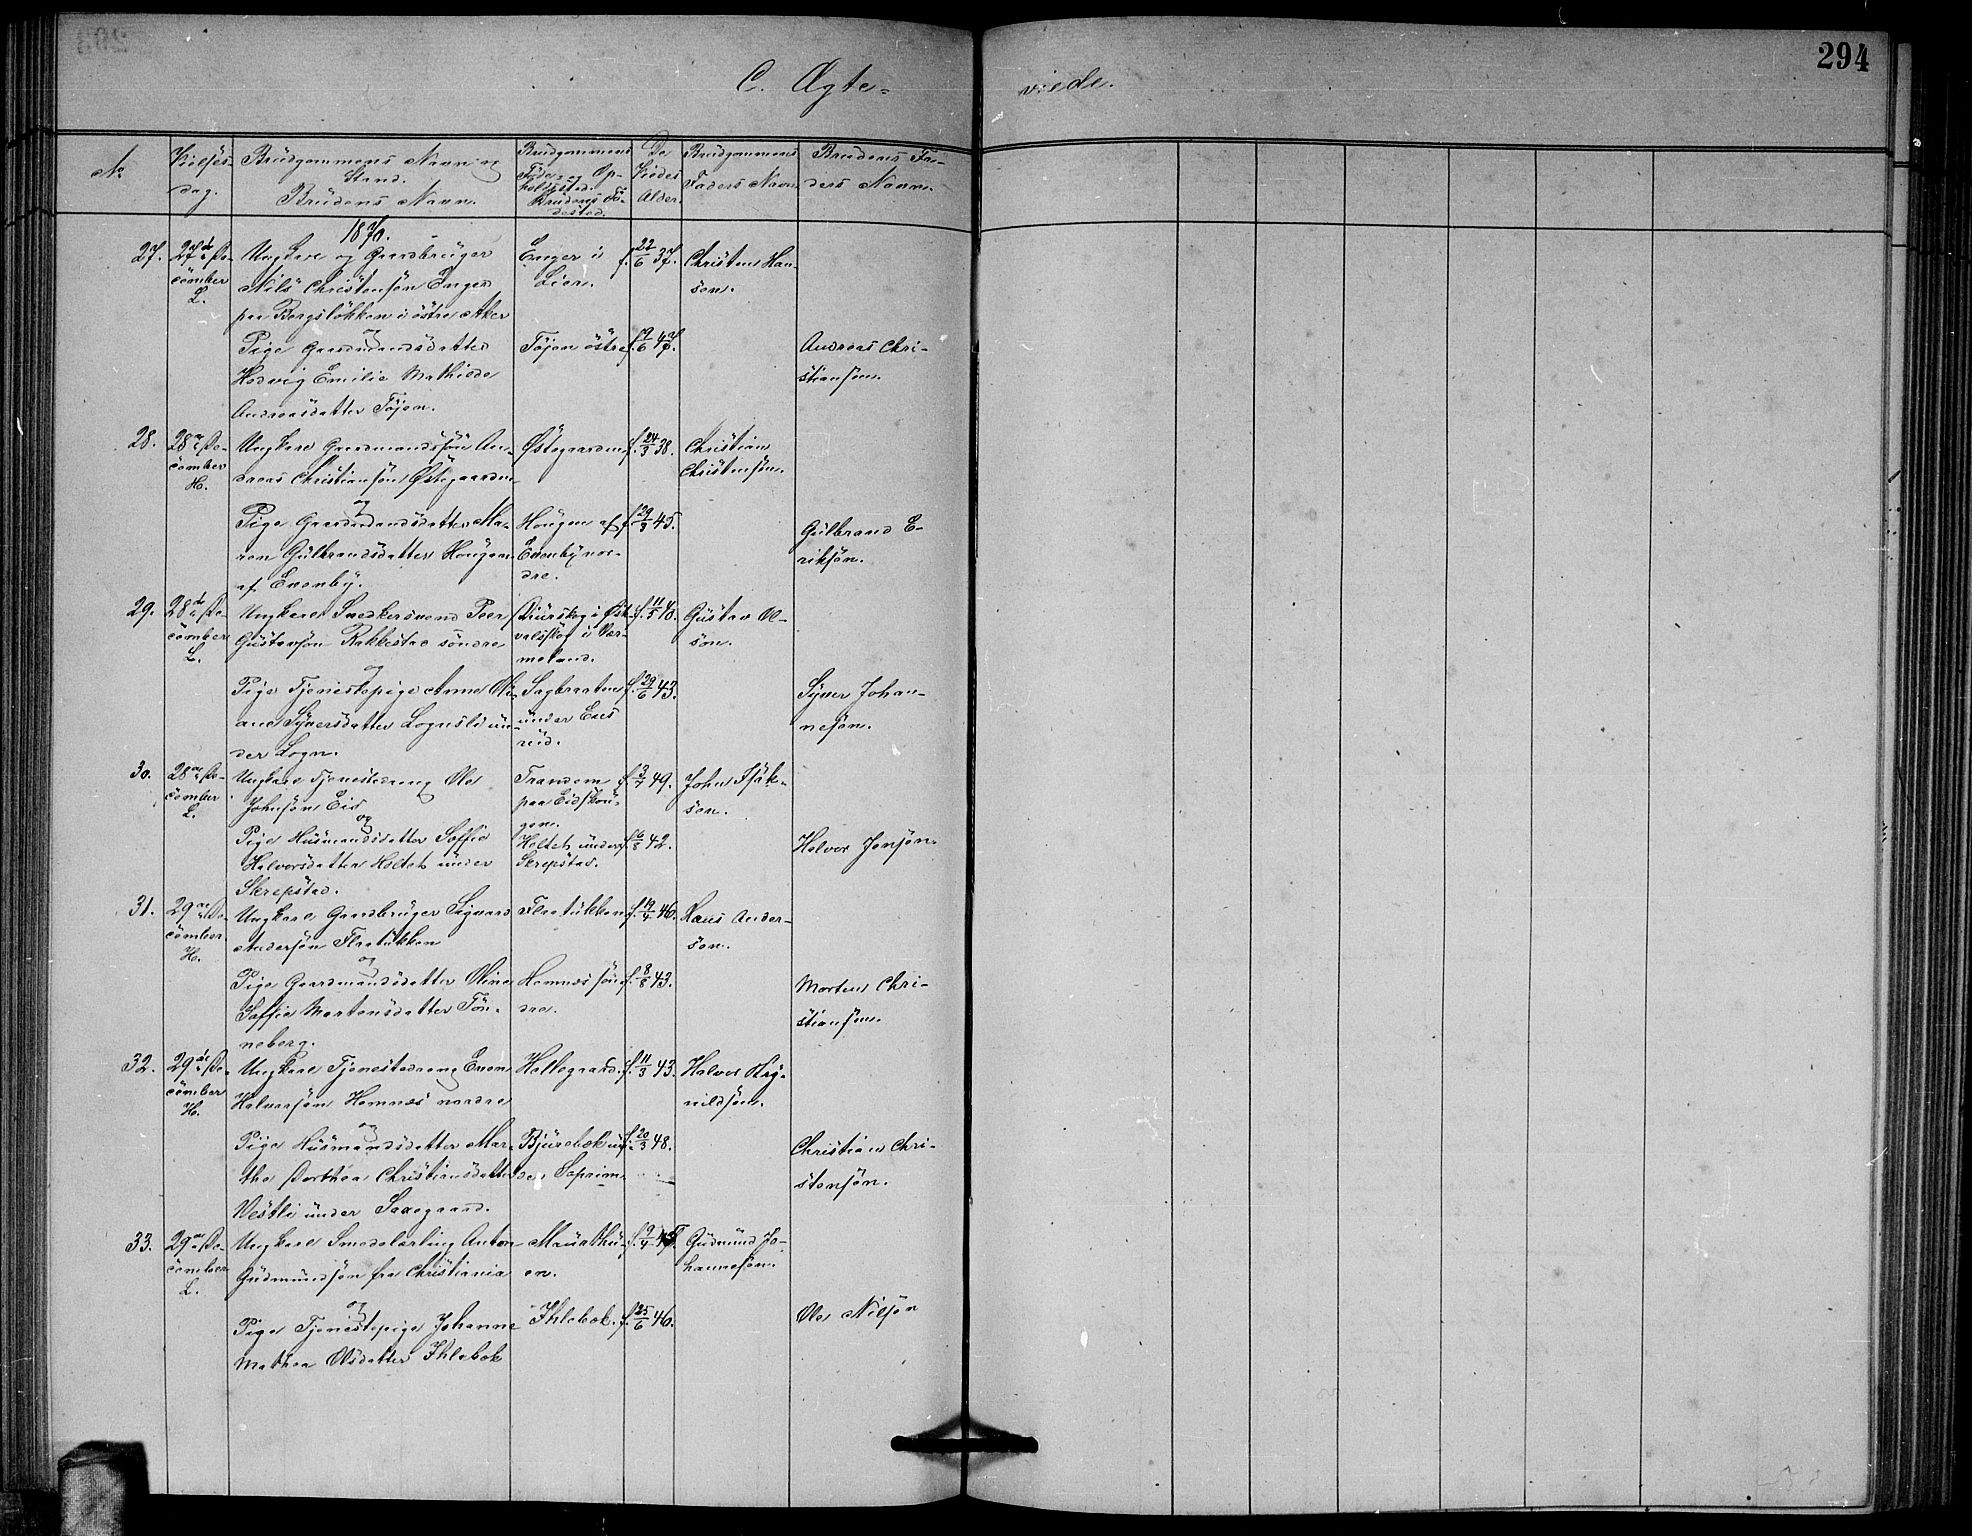 294
C. Ægte= viede.
No
Vielses-
dag.
Brudgommens Navn og
Stand.
Brudens Navn.
Brudgommens
Føde- og Op-
holdssted.
Brudens Fø-
dested.
De
Viedes
Alder.
Brudgommens
Faders Navn
Brudens Fa-
ders Navn.
1870.
27.
27de De-
cember
L.
Ungkarl og Gaardbruger
Nils Christensøn Enger
paa Bergsløkken i østre Aker
Enger i
Lier.
f. 22/6 37.
Christen Han-
sen.
og
Pige Gaardmandsdatter
Hedvig Emilie Mathilde
Andreasdatter Tøjen.
Tøjen østre
f. 19/6 47.
Andreas Chri-
stiansøn.
28.
28de De-
cember
H.
Ungkarl Gaardmandssøn An-
dreas Christiansøn Østegaarden
Østegaarden
f. 24/3 38.
Christian
Christensøn.
og
Pige Gaardmandsdatter Ma-
ren Gulbrandsdatter Hougen
af Evenby.
Hougen af
Evenby nor-
dre.
f. 29/3 45.
Gulbrand E-
riksøn.
29.
28de De-
cember
L.
Ungkarl Snedkersvend Peer
Gustavsøn Rakkestad søndre
Diurskog i Øst-
valsskog i Ver-
meland.
f. 11/5 40.
Gustav Ol-
søn.
og
Pige Tjenestepige Anne Ol-
ane Syversdatter Lognsli un-
der Logn.
Sagbraaten
under Ens
rud.
f. 29/6 43.
Syver Johan-
nesøn.
30.
28de De-
cember
L.
Ungkarl Tjenestedreng Ole
Johnsøn Eid
Trandem
paa Eidskou-
gen.
f. 3/7 49.
John Isak-
sen.
og
Pige Husmandsdatter Soffie
Halvorsdatter Holtet under
Skrepstad.
Holtet under
Skrepstad.
f. 6/8 42.
Halvor Jonsøn.
31.
29de De-
cember
H.
Ungkarl Gaardbruger Sigvard
Andersøn Flaatukken
Flaatukken
f. 19/4 46.
Hans Ander-
sen.
og
Pige Gaardmandsdatter Oline
Soffie Mortensdatter Tøn-
neberg.
Hemnes søn
dre.
f. 8/8 43.
Morten Chri-
stiansøn.
32.
29de De-
cember
H.
Ungkarl Tjenestedreng Even
Halvorsøn Hemnes nordre
Hellegaard.
f. 11/3 43.
Halvor
og
Pige Husmandsdatter Mar-
the Dorthea Christiansdatter
Vestli under Saxegaard.
Bjürebæk un-
der Soprim.
f. 20/3 48.
Christian Chri-
stensøn.
33.
29de De-
cember
L.
Ungkarl Smedelærling Anton
Gudmundsøn fra Christiania
Maurthu-
en.
f. 9/4
Gudmund Jo-
hannesøn.
og
Pige Tjenestepige Johanne
Mathea Olsdatter Ihlebæk
Ihlebæk.
f. 25/6 46.
Ole Nilsøn